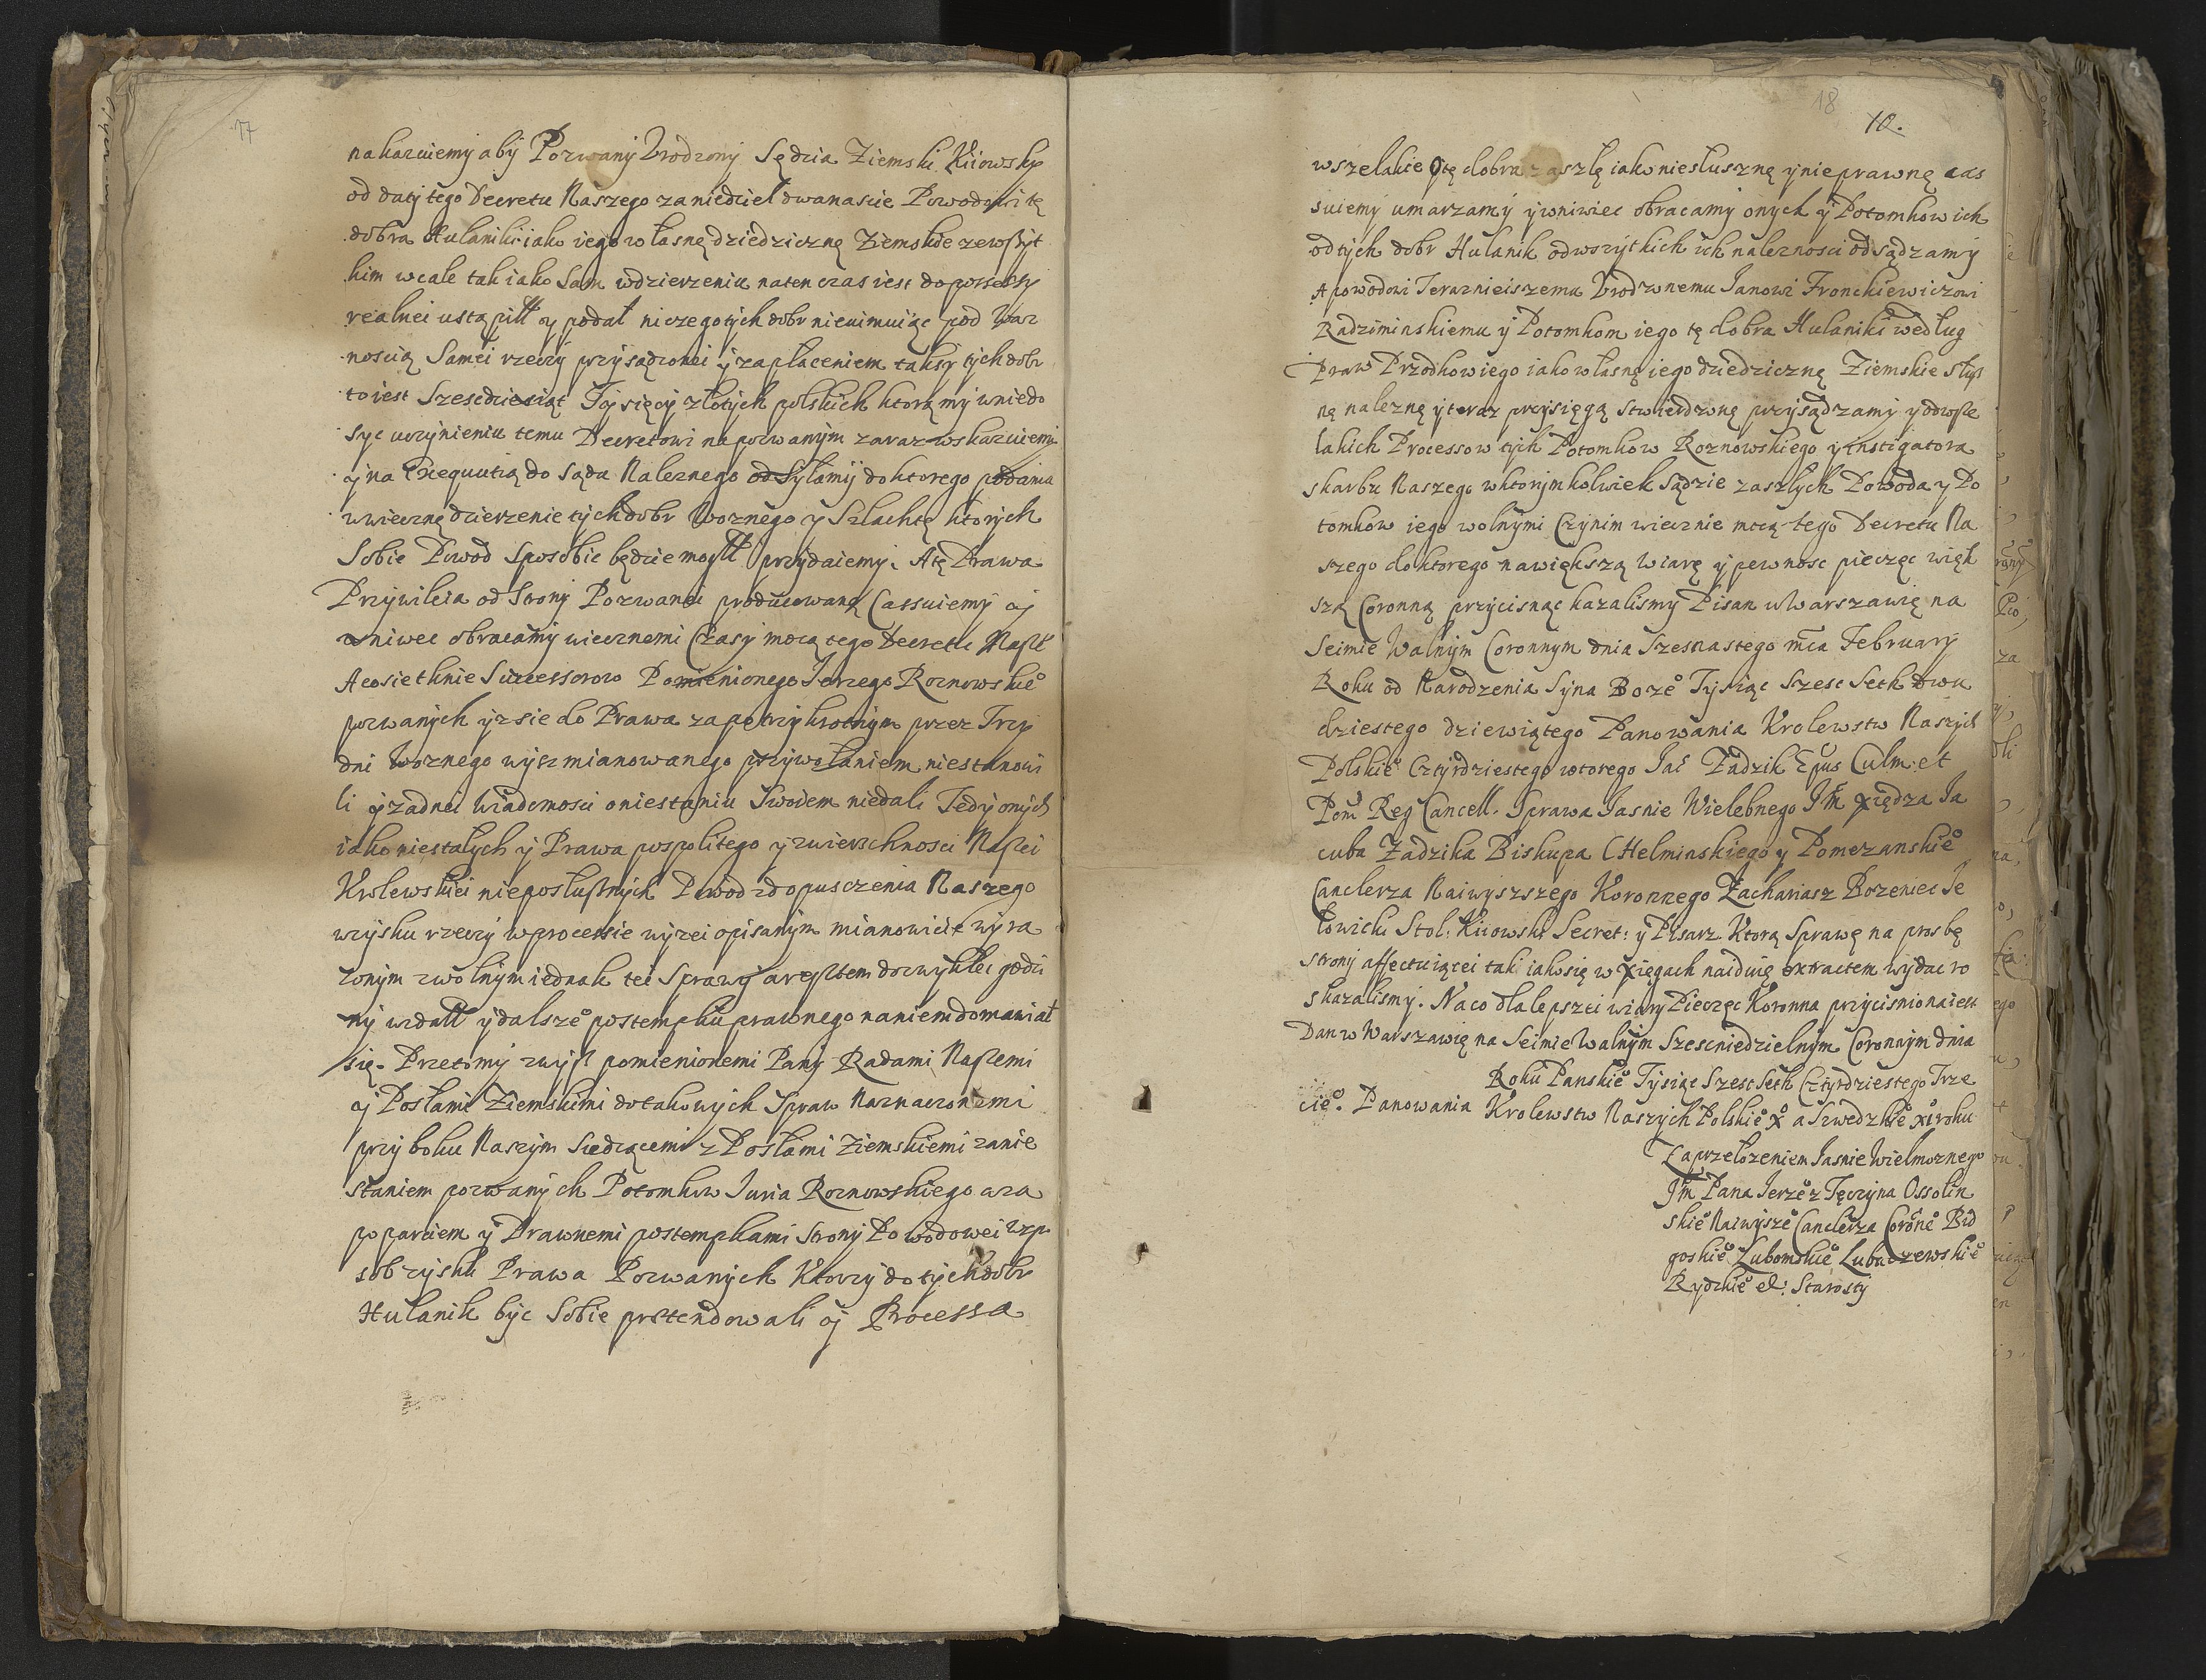 17
nakazuiemy aby Pozwany Urodzony Sędzia Ziemski Kiiowsky
od daty tego Decretu Naszego za niedziel dwanascie Powodowi tę
dobra Hulaniki iako iego własnę dziedzicznę Ziemskie ze wszyt
kim wcale tak iako Sam w dzierzeniu naten czas iest do possessy
realnei ustąpiłł y podał niczego tych dobr nieuimuiąc pod Waz
noscią Samei rzeczy przysądzonei y zapłaceniem taksy tych dobr
to iest Szescdziesiąt Tysięcy złotych polskich ktorą my w niedo
syc uczynieniu temu Decretowi na pozwanym zaraz wskazuiemy
y na Exequutią do Sądu Naleznego odsyłamy do ktorego podania
w wiecznę dzierzenie tych dobr Woznego y Szlachtę ktorych
Sobie Powod sposobic będzie mogłł przydaiemy. A tę Prawa
Przywileia od Strony Pozwanei producowanę Cassuiemy y
wniwec obracamy wiecznemi Czasy mocą tego Decretu Naszego
A co sie tknie Successorow Pomienionego Ierzego Roznowskieo
pozwanych yz sie do Prawa za potrzykrotnym przez Trzy
dni Woznego wysz mianowanego przywołaniem nie stanowi
li y zadnei Wiadomosci o niestaniu Swoiem niedali Tedy onych
iako niestałych y Prawa pospolitego y zwierzchnosci Naszei
Krolewskiei nieposłusznych Powod z dopusczenia Naszego
wzysku rzeczy w processie wyzei opisanym mianowicie wyra
zonym z wolnym iednak tei Sprawy aresztem do zwykłei godzi
ny wzdałł y dalszeo postempku prawnego na niem domawiał
się. Przeto my z wysz pomienionemi Pany Radami Naszemi
y Posłami Ziemskiemi do takowych Spraw Naznaczonemi
przy boku Naszym Siedzącemi z Posłami Ziemskiemi za nie
staniem pozwanych Potomkow Iuria Roznowskiego a za
poparciem y Prawnemi postempkami Strony Powodowei wzp
sob zysku Prawa Pozwanych Ktorzy do tych dobr
Hulanik byc Sobie pretendowali y Processa
18
10.
wszelakie o tę dobra zaszłę iako niesłusznę y nieprawnę cas
suiemy umarzamy y wniwiec obracamy onych y Potomkow ich
od tych dobr Hulanik od wszytkich ich naleznosci odsądzamy
A powodowi Teraznieiszemu Urodzonemu Ianowi Fronckiewiczowi
Radziminskiemu y Potomkom iego tę dobra Hulaniki według
Praw Przodkow iego iako własnę iego dziedzicznę Ziemskie słus
nę naleznę y teraz przysięgą stwierdzonę przysądzamy y od wsze
lakich Processow tych Potomkow Roznowskiego y Instigatora
skarbu Naszego w ktorymkolwiek Sądzie zaszłych Powoda y Po
tomkow iego wolnymi Czynim wiecznie mocą tego Decretu Na
szego do ktorego nawiększą Wiarę y pewnosc pieczęc więk
szą Coronną przycisnąc kazalismy Pisan w Warszawię na
Seimie Walnym Coronnym dnia Szesnastego mca February
Roku od Narodzenia Syna Bozeo Tysiąc Szesc Seth dwu
dziestego dziewiątego Panowania Krolewstw Naszych
Polskieo Cztyrdziestego wtorego Iac Zadzik Epus Culm: et
Pom: Reg Cancell. Sprawa Iasnie Wielebnego Im Xiędza Ia
cuba Zadzika Biskupa CHelminskiego y Pomezanskieo
Canclerza Naiwyszszego Koronnego Zachariasz Bozeniec Ie
łowicki Stol: Kiiowski Secret: y Pisarz Ktorą Sprawę na prosbę
strony affectuiącei tak iako się w Xięgach naiduię extractem wydac ro
skazalismy. Na co dla lepszei wiary Pieczęc Koronna przycisniona iest
Dan w Warszawię na Seimie Walnym Szescniedzielnym Coronnym dnia
Roku Panskieo Tysiąc Szesc Seth Cztyrdziestego Trze
cieo. Panowania Krolewstw Naszych Polskieo Xo a Szwedzkieo XIo roku
Za przełozeniem Iasnie Wielmoznego
Im Pana Ierzeo z Tęczyna Ossolin
skieo Naiwyszeo Canclerza Coroneo Bid
goskieo Lubomskieo Lubaczewskieo
Rydzkieo et: Starosty